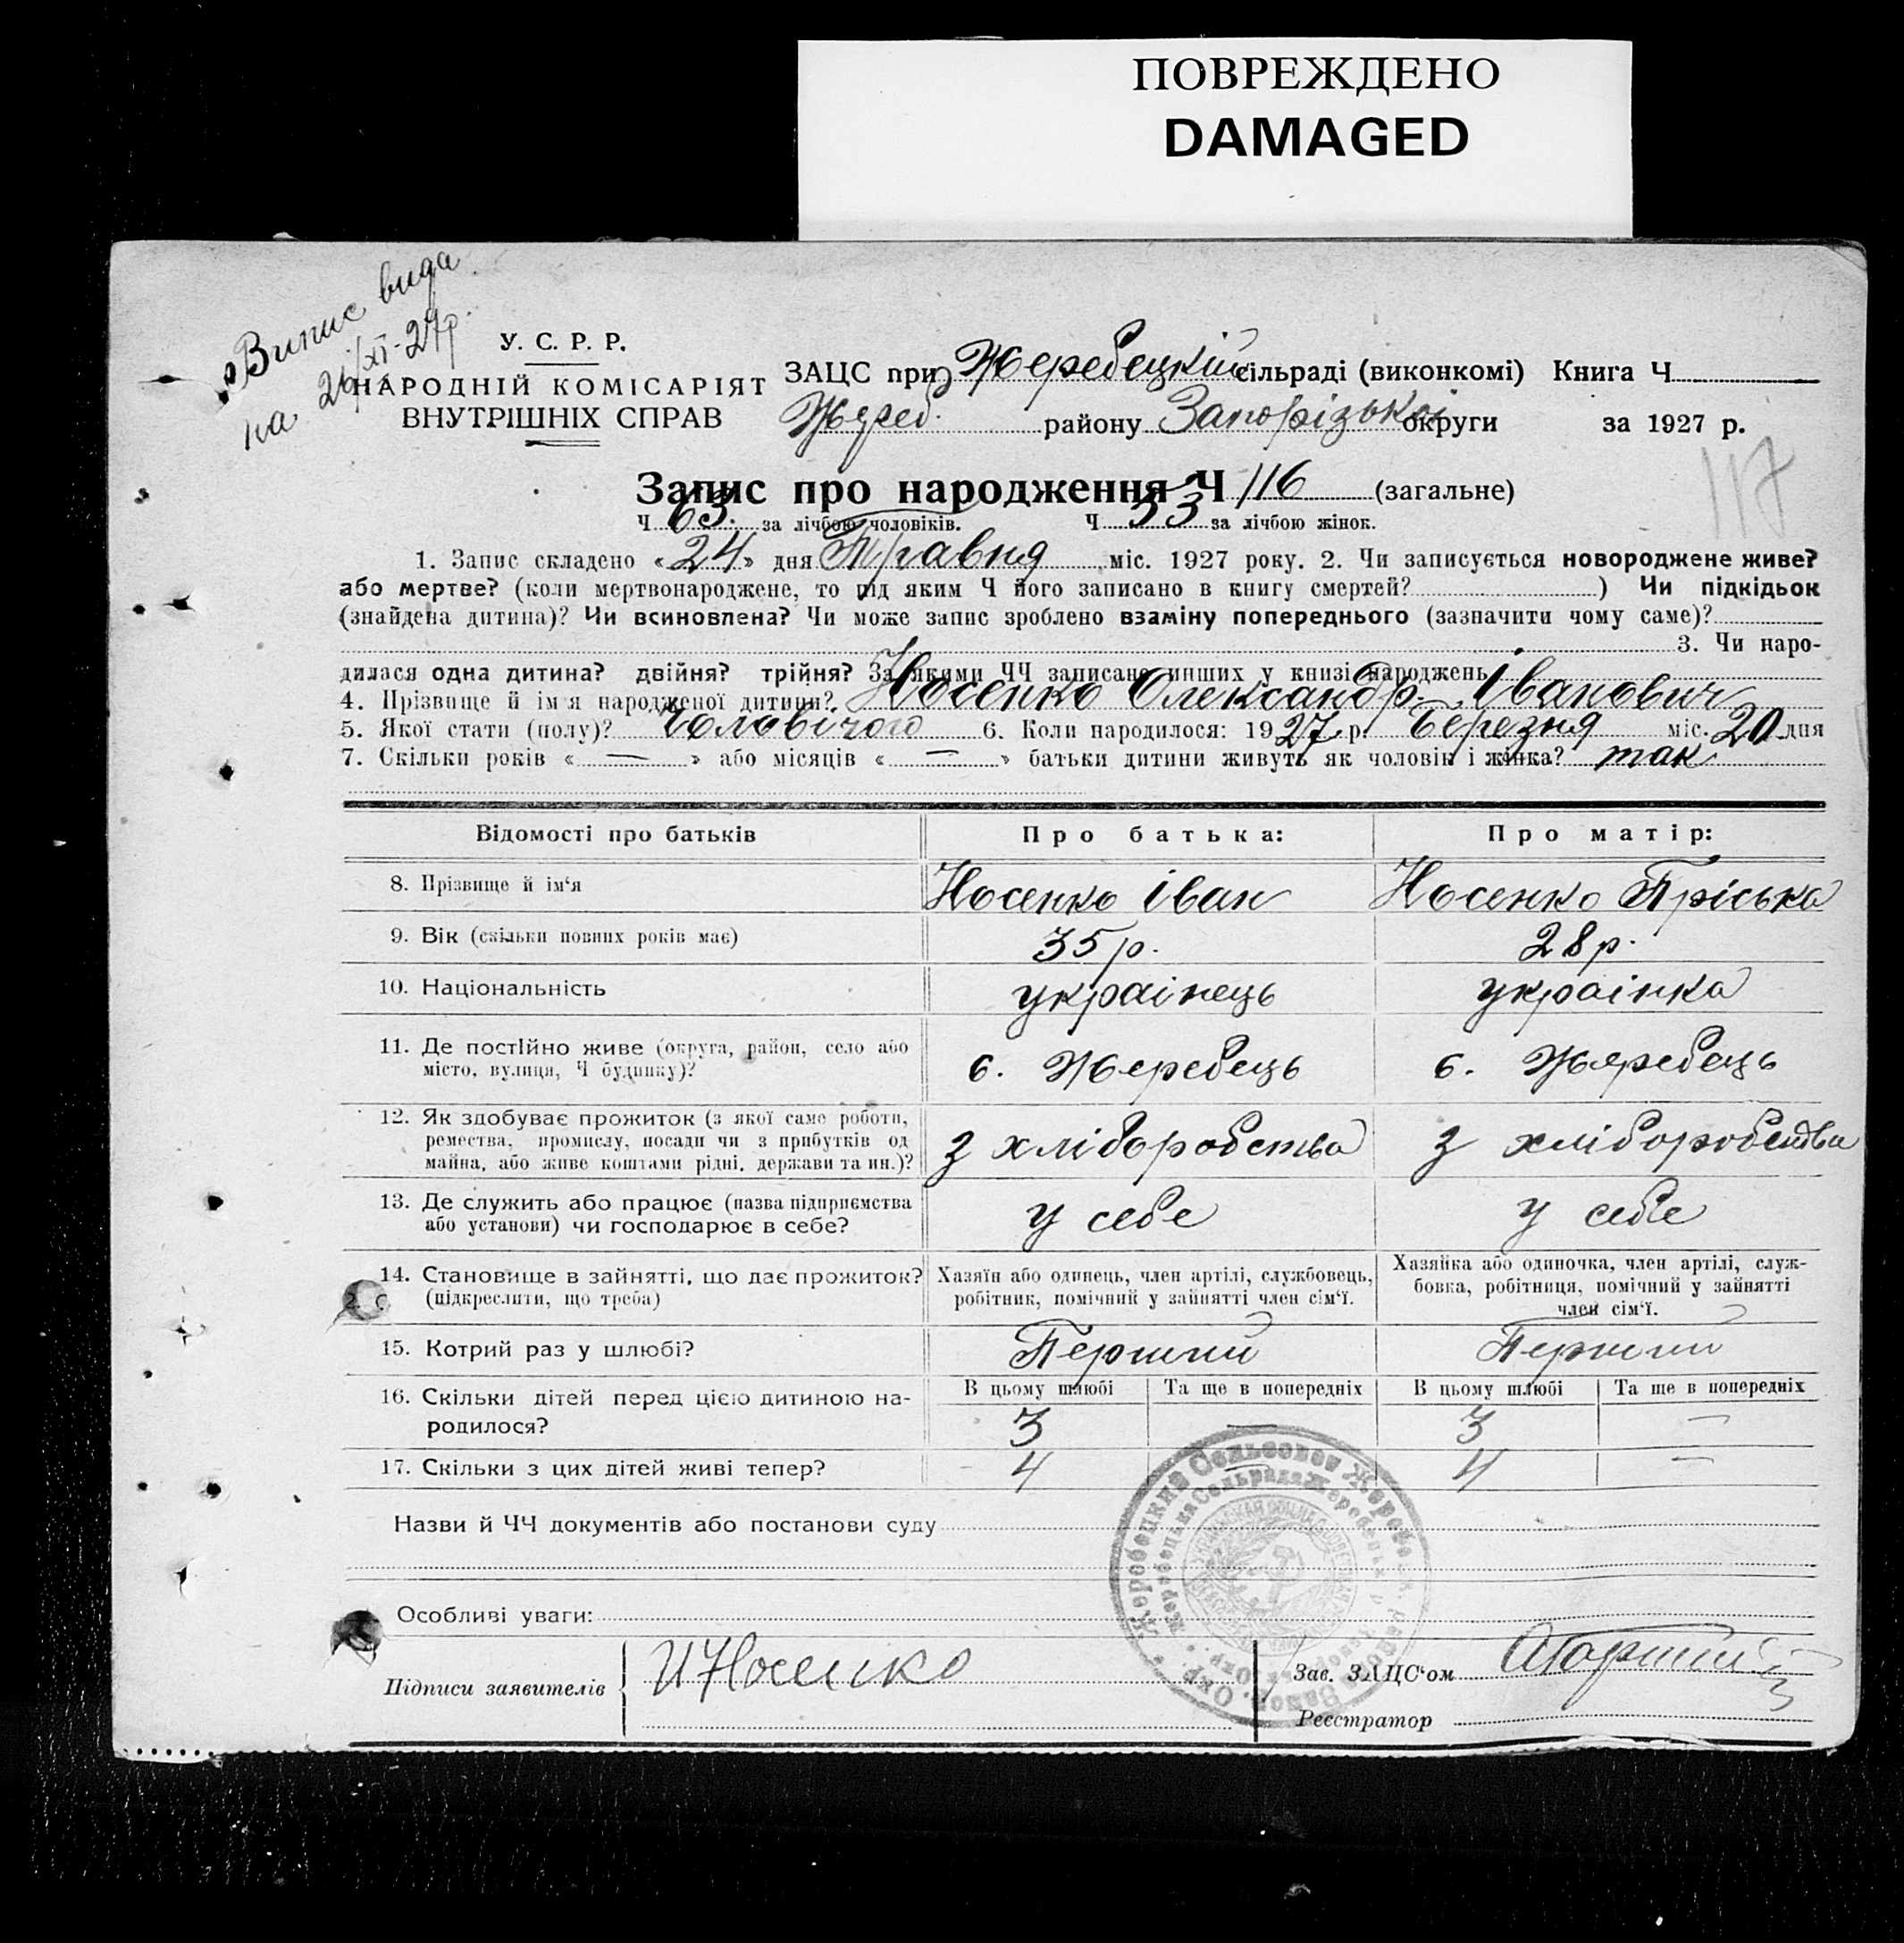 ПОВРЕЖДЕНО
DAMAGED
Випис вида
на 26/XI-27р.
У. С. Р. Р.
НАРОДНІЙ КОМІСАРІЯТ
ВНУТРІШНІХ СПРАВ
ЗАЦС при Жеребецкій сільраді (виконкомі) Книга Ч
Жереб. району Запорізької округи за 1927 р.
117
Запис про народження Ч 116 (загальне)
Ч 63. за лічбою чоловіків. Ч 53 за лічбою жінок.
1. Запис складено «24» дня Травня міс. 1927 року. 2. Чи записується новороджене живе?
або мертве? (коли мертвонароджене, то під яким Ч його записано в книгу смертей? ) Чи підкідьок
(знайдена дитина)? Чи всиновлена? Чи може запис зроблено взаміну попереднього (зазначити чому саме)?
3. Чи наро-
дилася одна дитина? двійня? трійня? За якими ЧЧ записано инших у книзі народжень
4. Прізвище й ім'я народженої дитини? Носенко Олександр Іванович
5. Якої стати (полу)? Чоловічого 6. Коли народилося: 1927 р. Березня міс. 20 дня
7. Скільки років « — » або місяців « — » батьки дитини живуть як чоловік і жінка? так
Відомості про батьків Про батька: Про матір:
8. Прізвище й ім'я Носенко Іван Носенко Пріська
9. Вік (скільки повних років має) 35 р. 28 р.
10. Національність українець українка
11. Де постійно живе (округа, район, село або
місто, вулиця, Ч будинку)? с. Жеребець с. Жеребець
12. Як здобуває прожиток (з якої саме роботи,
ремества, промислу, посади чи з прибутків од
майна, або живе коштами рідні, держави та ин.)? З хліборобства З хліборобства
13. Де служить або працює (назва підприємства
або установи) чи господарює в себе? У себе У себе
14. Становище в зайнятті, що дає прожиток?
(підкреслити, що треба)
Хазяїн або одинець, член артілі, службовець,
робітник, помічний у зайнятті член сім'ї.
Хазяйка або одиночка, член артілі, служ-
бовка, робітниця, помічний у зайнятті
член сім'ї.
15. Котрий раз у шлюбі? Перший Перший
16. Скільки дітей перед цією дитиною на-
родилося?
В цьому шлюбі Та ще в попередніх В цьому шлюбі Та ще в попередніх
3 — 3 —
17. Скільки з цих дітей живі тепер? 4 — 4 —
Назви й ЧЧ документів або постанови суду
Особливі уваги:
Підписи заявителів И Носенко
Зав. ЗАЦС'ом
Реєстратор